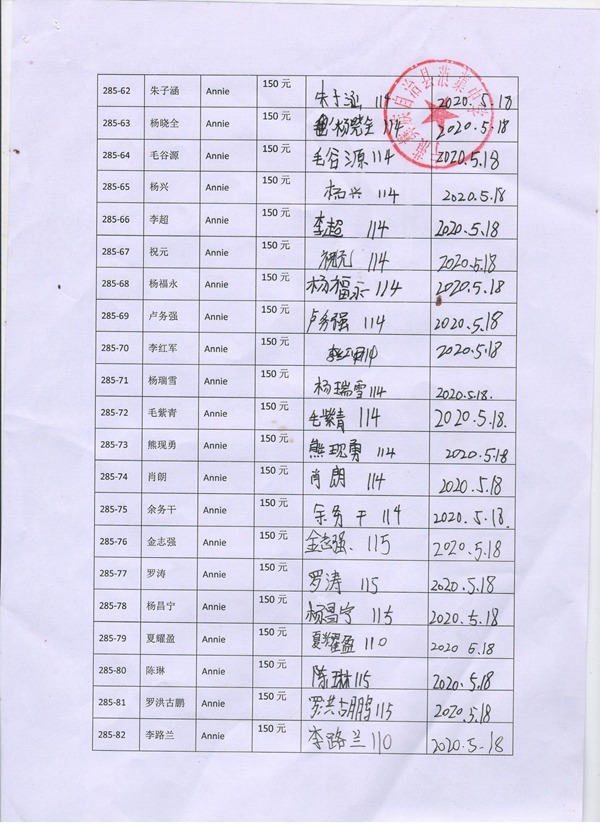 285-62 朱子涵 Annie 150 元 朱子涵 114 2020.5.18
285-63 杨晓全 Annie 150 元 杨晓全 114 2020.5.18
285-64 毛谷源 Annie 150 元 毛谷源 114 2020.5.18
285-65 杨兴 Annie 150 元 杨兴 114 2020.5.18
285-66 李超 Annie 150 元 李超 114 2020.5.18
285-67 祝元 Annie 150 元 祝元 114 2020.5.18
285-68 杨福永 Annie 150 元 杨福永 114 2020.5.18
285-69 卢务强 Annie 150 元 卢务强 114 2020.5.18
285-70 李红军 Annie 150 元 2020.5.18
285-71 杨瑞雪 Annie 150 元 杨瑞雪 114 2020.5.18.
285-72 毛紫青 Annie 150 元 毛紫青 114 2020.5.18.
285-73 熊现勇 Annie 150 元 熊现勇 114 2020.5.18
285-74 肖朗 Annie 150 元 肖朗 114 2020.5.18
285-75 余务干 Annie 150 元 余务干 114 2020.5.18.
285-76 金志强 Annie 150 元 金志强. 115 2020.5.18
285-77 罗涛 Annie 150 元 罗涛 115 2020.5.18
285-78 杨昌宁 Annie 150 元 杨昌宁 115 2020.5.18
285-79 夏耀盈 Annie 150 元 夏耀盈 110 2020 5.18
285-80 陈琳 Annie 150 元 陈琳 115 2020.5.18
285-81 罗洪古鹏 Annie 150 元 罗洪古鹏 115 2020.5.18
285-82 李路兰 Annie 150 元 李路兰 110 2020.5-18